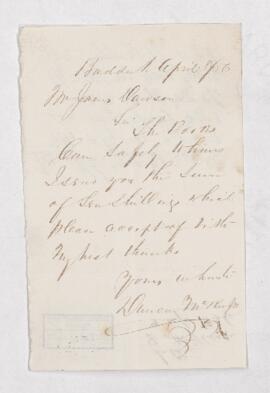 Baddeck April
Mr James Dawson
Sir The Books
Came Safely to hand
I send you the Sum
of Ten Shillings which
please accept of with
my best thanks
Yours in haste
Duncan